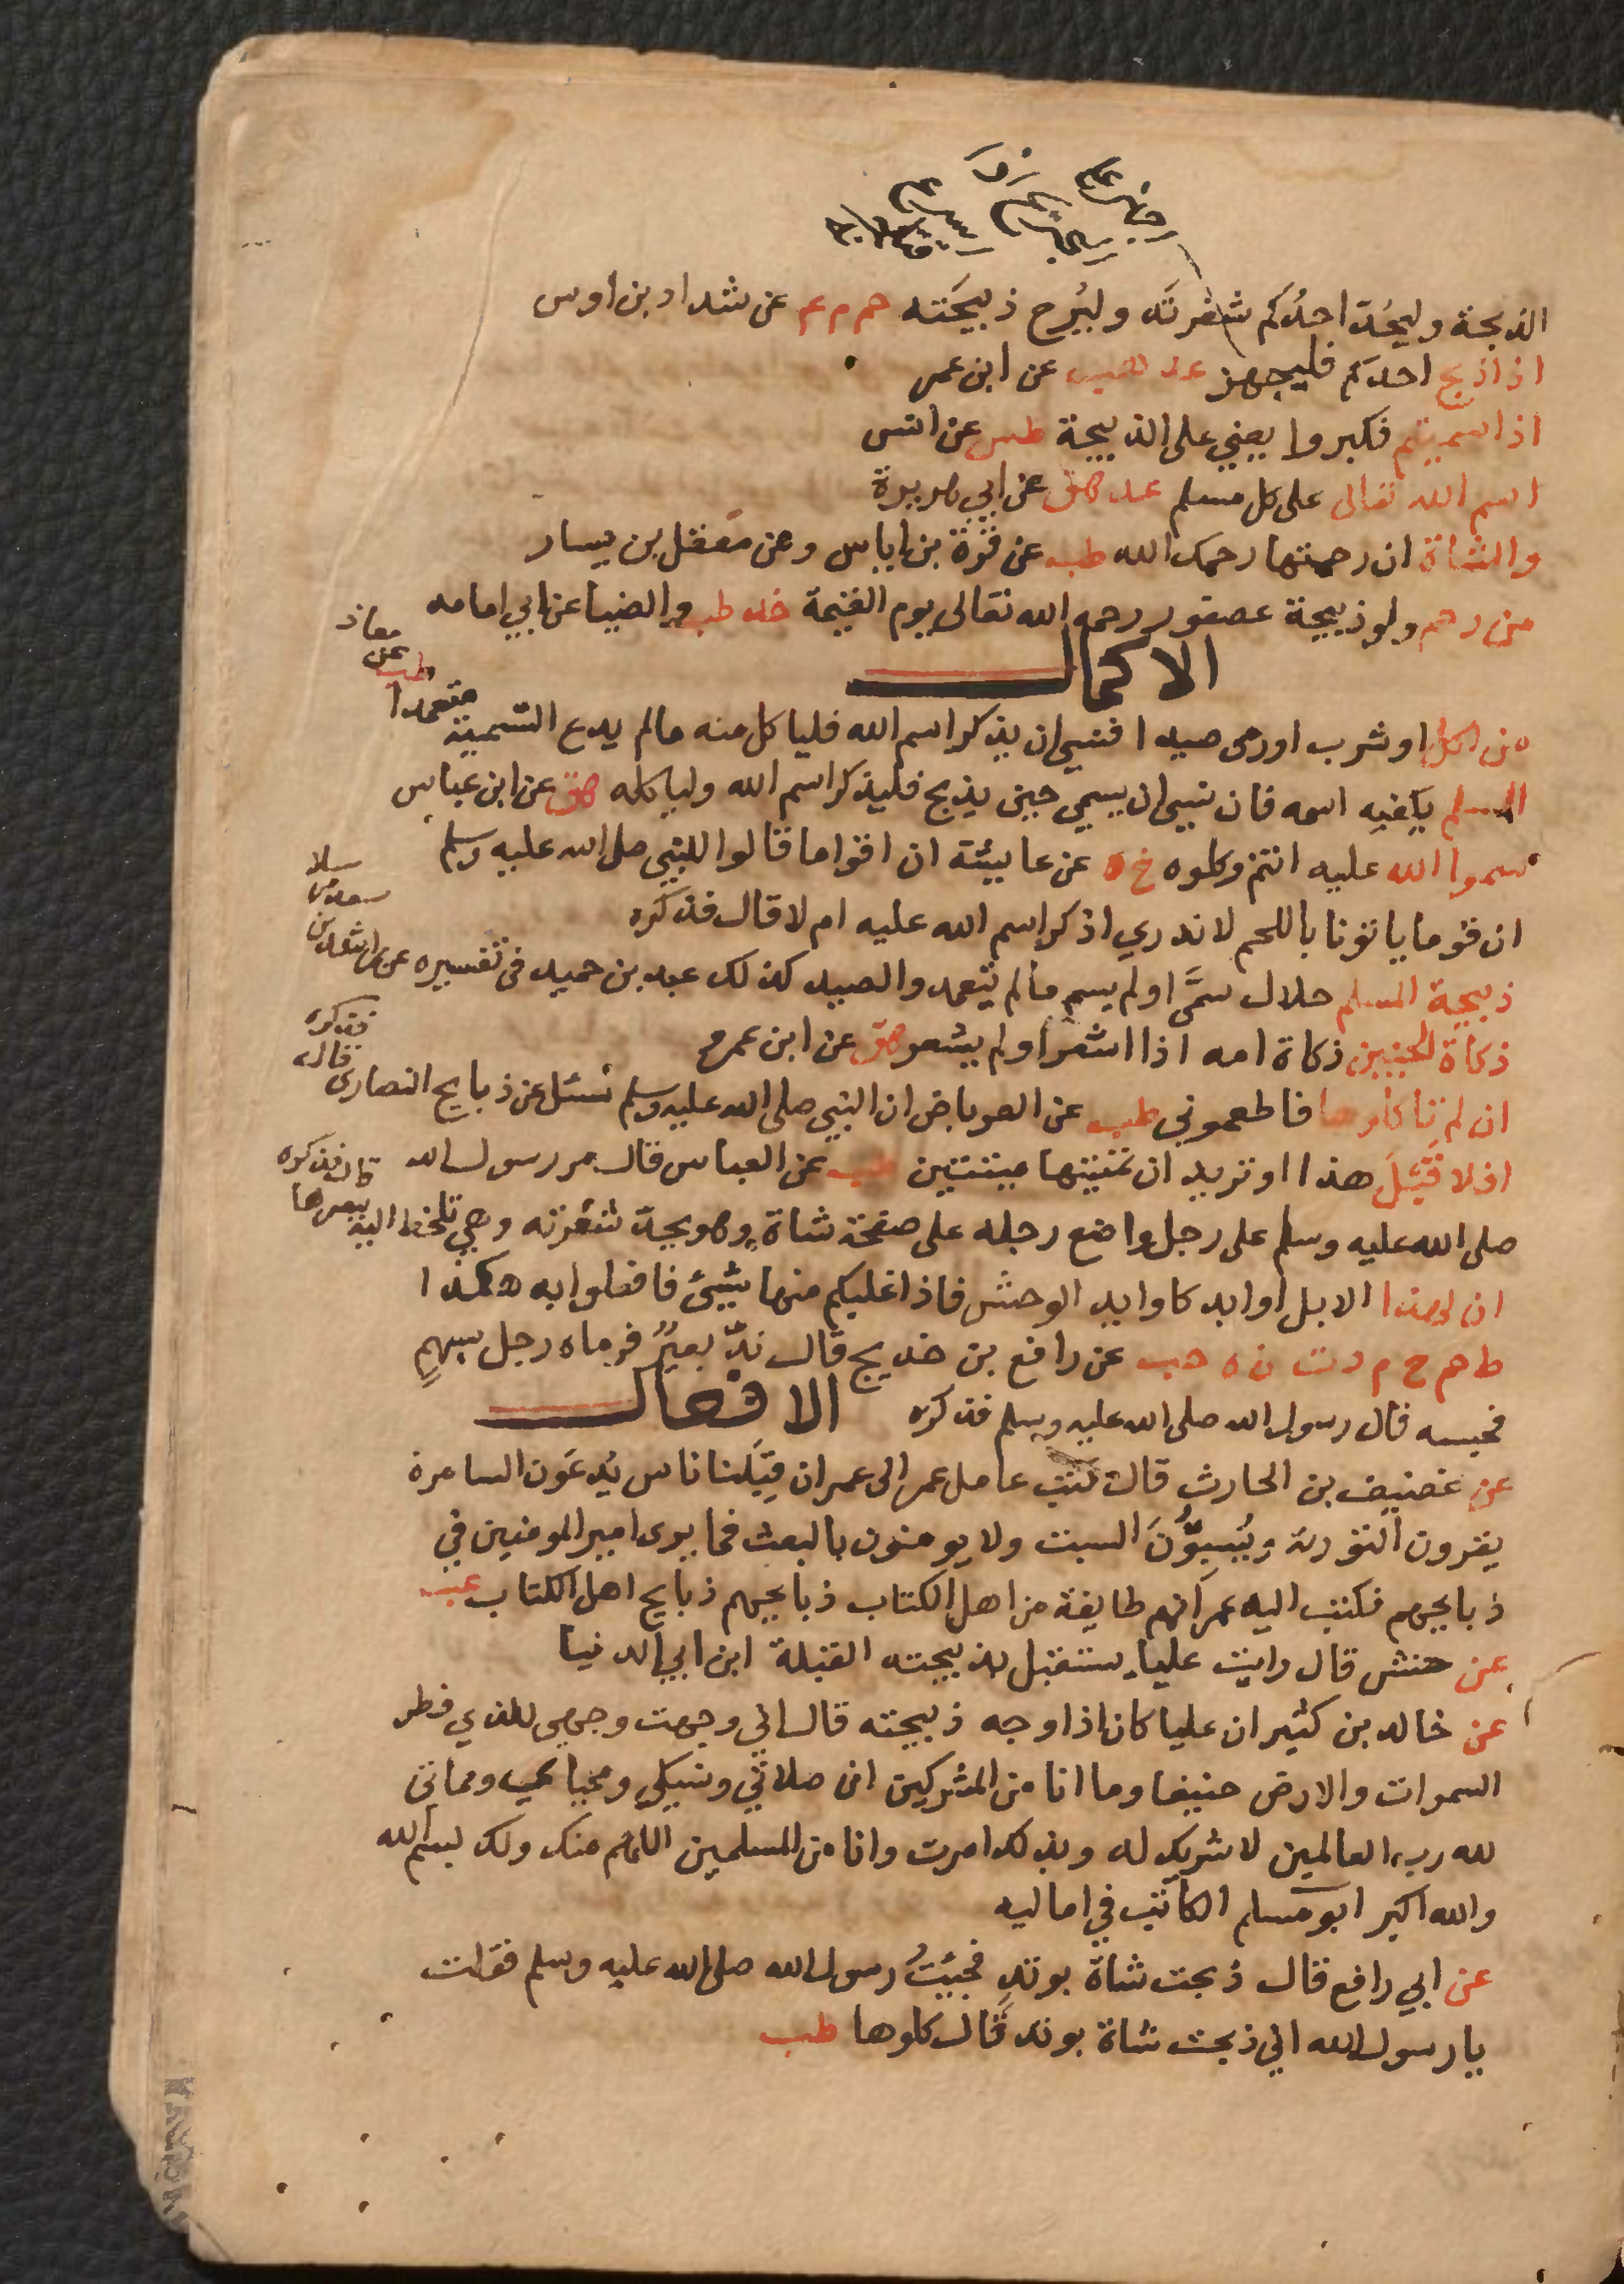 الذبحة وليحُدَّ احدُكم شفرتَه وليُرح ذبيحَته حم م عم عن شداد بن اوس
اذا ذبح احدكم فليجهز عد هب عن ابن عمر
اذا سميتم فكبروا يعني على الذبيحة طس عن انس
اسم الله تعالى على كل مسلم عد هق عن ابي هريرة
والشاة ان رحمتها رحمك الله طب عن قرة بن اياس وعن معقل بن يسار
من رحم ولو ذبيحة عصفور رحمه الله تعالى يوم القيمة خد طب والضيا عن ابي امامه
الاكمال
من اكل او شرب او رمى صيدا فنسي ان يذكر اسم الله فلياكل منه مالم يدع التسمية متعمدا
طب عن معاذ
المسلم يكفيه اسمه فان نسي ان يسمي حين يذبح فليذكر اسم الله ولياكله هق عن ابن عباس
سموا الله عليه انتم وكلوه خ ه عن عايشة ان اقواما قالوا للنبي صلى الله عليه وسلم
ان قوما ياتونا باللحم لا ندري اذكر اسم الله عليه ام لا قال فذكره
ذبيحة المسلم حلال سمَّى او لم يسم مالم يتعمد والصيد كذلك عبد بن حميد في تفسيره عن راشد بن
سعد مرسلا
ذكاة الجنين ذكاة امه اذا اشعر او لم يشعر هق عن ابن عمر
ان لم تاكلوها فاطعموني طب عن العرباض ان النبي صلى الله عليه وسلم سئل عن ذبايح النصارى قال
فذكره
افلا قبْلَ هذا او تريد ان تميتها ميتتين طب عن العباس قال مر رسول الله
صلى الله عليه وسلم على رجل واضع رجله على صفحة شاة وهو يحد شفرته وهي تلحظ اليه ببصرها
قال فذكره
ان لهذا الابل اوابد كاوابد الوحش فاذا غلبكم منها شيئ فافعلوا به هكذا
ط حم خ م د ت ن ه حب عن رافع بن خديج قال ندّ بعيرٌ فرماه رجل بسهمٍ
فحبسه قال رسول الله صلى الله عليه وسلم فذكره الافعال
عن غضيف بن الحارث قال كتب عامل عمر الى عمر ان قِبَلَنا ناس يُدعَون السامرة
يقرون التورية ويُسبِتُونَ السبت ولا يومنون بالبعث فما يرى امير المومنين في
ذبايحهم فكتب اليه عمر انهم طايفة من اهل الكتاب ذبايحهم ذبايح اهل الكتاب عب
عن حنش قال رايت عليا يستقبل بذبيحته القبلة ابن ابي الدنيا
عن خالد بن كثير ان عليا كان اذا وجه ذبيحته قال اني وجهت وجهي للذي فطر
السموات والارض حنيفا وما انا من المشركين ان صلاتي ونسكي ومحياي ومماتي
لله رب العالمين لا شريك له وبذلك امرت وانا من المسلمين اللهم منك ولك بسم الله
والله اكبر ابو مسلم الكاتب في اماليه
عن ابي رافع قال ذبحت شاة بوتدٍ فجيتُ رسول الله صلى الله عليه وسلم فقلت
يا رسول الله اني ذبحت شاة بوتد قال كلوها طب